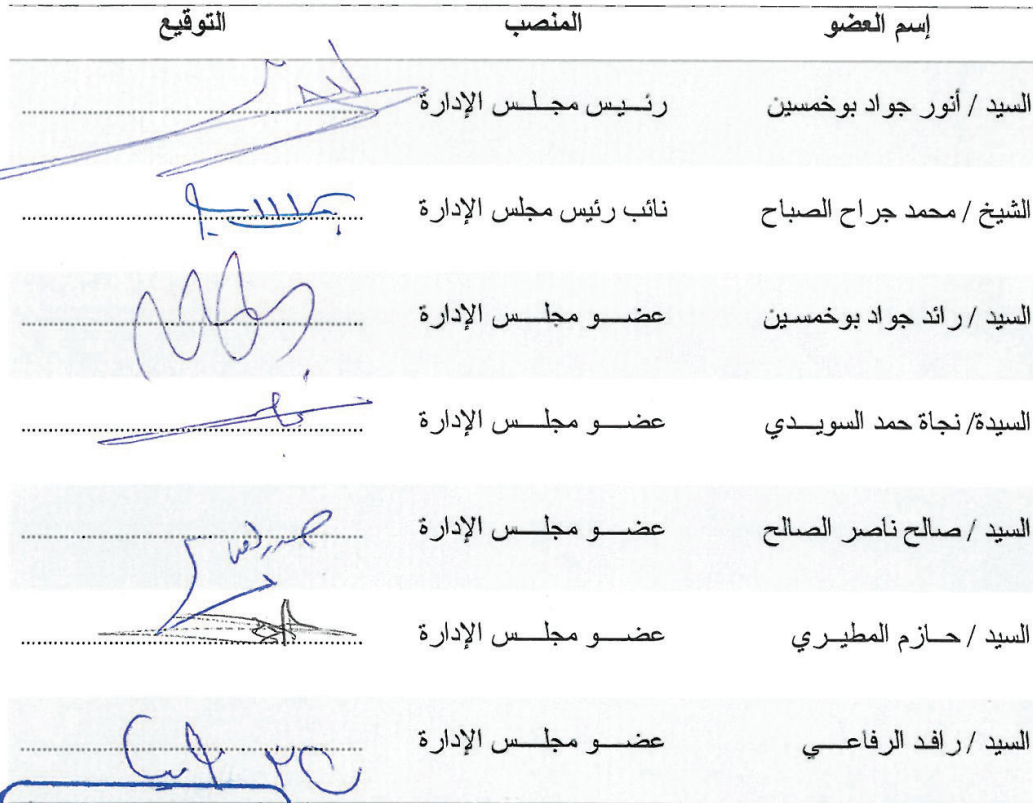 إسم العضو المنصب التوقيع
السيد / أنور جواد بوخمسين رئـيس مجـلـس الإدارة
الشيخ / محمد جراح الصباح نائب رئيس مجلس الإدارة
السيد / رائد جواد بوخمسين عضـــو مجلـــس الإدارة
السيدة/ نجاة حمد السويـــدي عضـــو مجلـــس الإدارة
السيد / صالح ناصر الصالح عضـــو مجلـــس الإدارة
السيد / حـــازم المطيـري عضـــو مجلـــس الإدارة
السيد / رافد الرفاعـــي عضـــو مجلـــس الإدارة